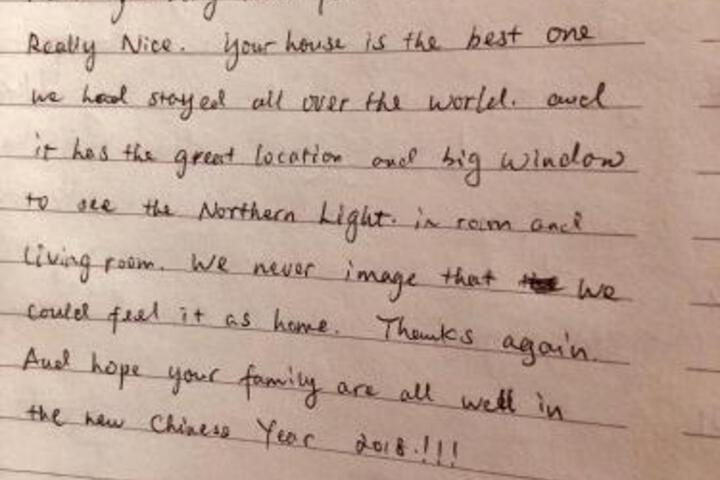 Really Nice. Your house is the best one
we had stayed all over the world. and
it has the great location and big window
to see the Northern Light. in room and
Living room. We never image that we
could feel it as home. Thanks again.
And hope your family are all well in
the new Chinese Year 2018.!!!